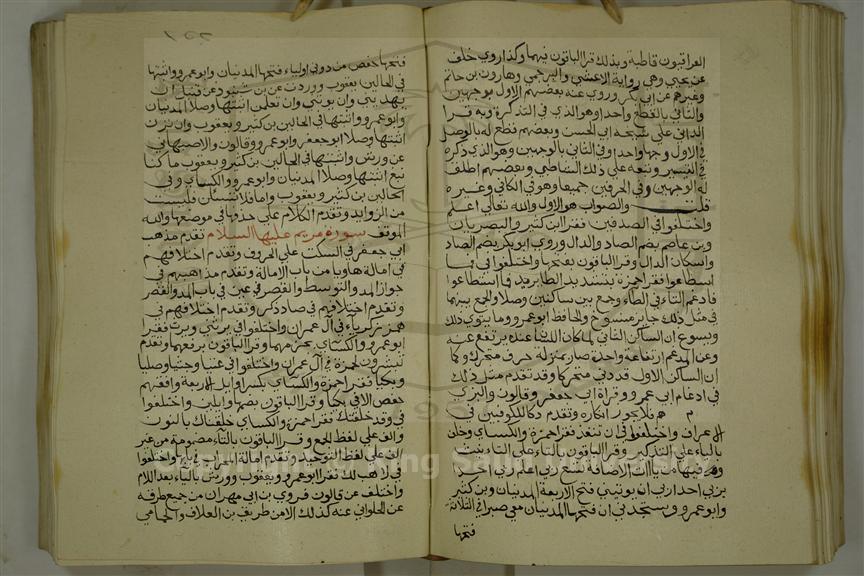 العراقيون قاطبة وبذلك قرا الباقون فيهما وكذا روي خلف
عن يحيي وهي رواية الاعشي والبرجمي وهارون بن حاتم
وغيرهم عن ابي بكر وروي عنه بعضهم الاول بوجهين
والثاني بالقطع وجها واحدا وهو الذي في التذكرة وبه قرا
الداني علي شيخه ابي الحسن وبعضهم قطع له بالوصل
في الاول وجها واحدا وفي الثاني بالوجهين وهو الذي ذكره
في التيسير وتبعه علي ذلك الشاطبي وبعضهم اطلق
له الوجهين في الحرفين جميعا وهو في الكافي وغيره
قلت والصواب هو الاول والله تعالي اعلم
واختلفوا في الصدفين فقرا ابن كثير والبصريان
وبن عامر بضم الصاد والدال وروي ابو بكر بضم الصاد
واسكان الدال وقرا الباقون بفتحها واختلفوا في فما
اسطاعوا فقرا حمزة بتشديد الطا يريد فما استطاعوا
فادغم التاء في الطاء وجمع بين ساكنين وصلا والجمع بينهما
في مثل ذلك جايز مسموع والحافظ ابو عمرو وما يقوي ذلك
ويسوغ ان الساكن الثاني لما كان اللسان عنه يرتفع عنه
وعن المدغم ارتفاعة واحدة صار بمنزلة حرف متحرك وكما
ان الساكن الاول قد ولي متحركا وقد تقدم مثل ذلك
في ادغام ابي عمرو وقراة ابي جعفر وقالون والبزي
فلا يجوز انكاره وتقدم دكا للكوفيين في
ال عمران واختلفوا في ان تنفد فقرا حمزة والكساي وخلف
بالياء علي التذكير وقرا الباقون بالتاء علي التانيث
وفيها من ياات الاضافة تسع ربي اعلم بربي احدا
بربي احدا ربي ان يوتيني فتح الاربعة المدنيان وبن كثير
وابو عمرو ستجدني ان فتحها المدنيان معي صبرا في الثلاثة
فتحها
فتحها حفص من دوني اولياء فتحها المدنيان وابو عمرو واثبتها
في الحالين يعقوب ووردت عن بن شنبوذ عن قنبل ان
يهديني وان يوتيني وان تعلمن اثبتها وصلا المدنيان
وابو عمرو واثبتها في الحالين بن كثير ويعقوب وان ترن
اثبتها وصلا ابو جعفر وابو عمرو وقالون والاصبهاني
عن ورش واثبتها في الحالين بن كثير ويعقوب ما كنا
نبغ اثبتها وصلا المدنيان وابو عمرو والكساي وفي
الحالين بن كثير ويعقوب واما فلا تسئلن فليست
من الزوايد وتقدم الكلام علي حذفها في موضعها والله
الموفق سورة مريم عليها السلام تقدم مذهب
ابي جعفر في السكت علي الحروف وتقدم اختلافهم
في امالة ها ويا من باب الامالة وتقدم مذاهبهم في
جواز المد والتوسط والقصر في عين في باب المد والقصر
وتقدم اختلافهم في صاد ذكر وتقدم اختلافهم في
همز زكرياء في آل عمران واختلفوا في يرثني ويرث فقرا
ابو عمرو والكساي بجزمهما وقرا الباقون برفعهما وتقدم
نبشرك لحمزة في آل عمران واختلفوا في عتيا وجثيا وصليا
وبكيا فقرا حمزة والكساي بكسر اوايل الاربعة وافقهم
حفص الا في بكيا وقرا الباقون بضم اوايلهن واختلفوا
في وقد خلقتك فقرا حمزة والكساي خلقناك بالنون
والف علي لفظ الجمع وقرا الباقون بالتاء مضمومة من غير
الف علي لفظ التوحيد وتقدم امالة المحراب في بابها واختلفوا
في لاهب لك فقرا ابو عمرو ويعقوب وورش بالياء بعد اللام
واختلف عن قالون فروي بن ابي مهران من جميع طرقه
عن الحلواني عنه كذلك الا من طريق بن العلاف والحمامي